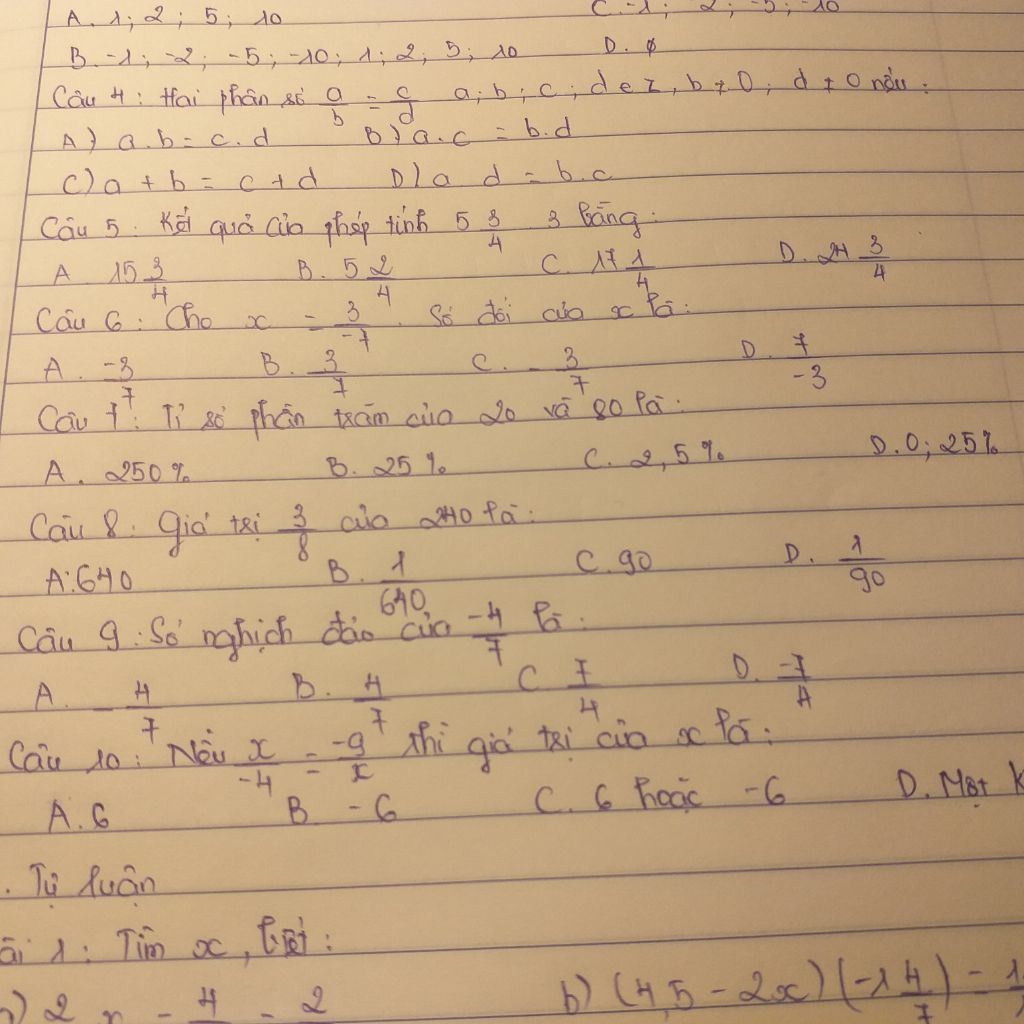 A. 1; 2; 5; 10 C. -1; -2; -5; -10
B. -1; -2; -5; -10; 1; 2; 5; 10 D. ϕ
Câu 4: Hai phân số a/b = c/d a; b; c; d ∈ Z, b ≠ 0; d ≠ 0 nếu:
A) a.b = c.d B) a.c = b.d
C) a + b = c + d D) a d = b.c
Câu 5: Kết quả của phép tính 5 3/4 3 bằng:
A 15 3/4 B. 5 2/4 C. 17 1/4 D. 24 3/4
Câu 6: Cho x = 3/-7. Số đối của x là:
A. -3/7 B. 3/7 C. - 3/7 D. 7/-3
Câu 7: Tỉ số phần trăm của 20 và 80 là:
A. 250% B. 25% C. 2,5% D. 0; 25%
Câu 8: Giá trị 3/8 của 240 là:
A: 640 B. 1/640 C. 90 D. 1/90
Câu 9: Số nghịch đảo của -4/7 là:
A. - 4/7 B. 4/7 C 7/4 D. -7/4
Câu 10: Nếu x/-4 = -9/x thì giá trị của x là:
A. 6 B -6 C. 6 hoặc -6 D. Một
. Tự luận
ài 1: Tìm x, biết:
b) (4,5 - 2x)(-1 4/7) =